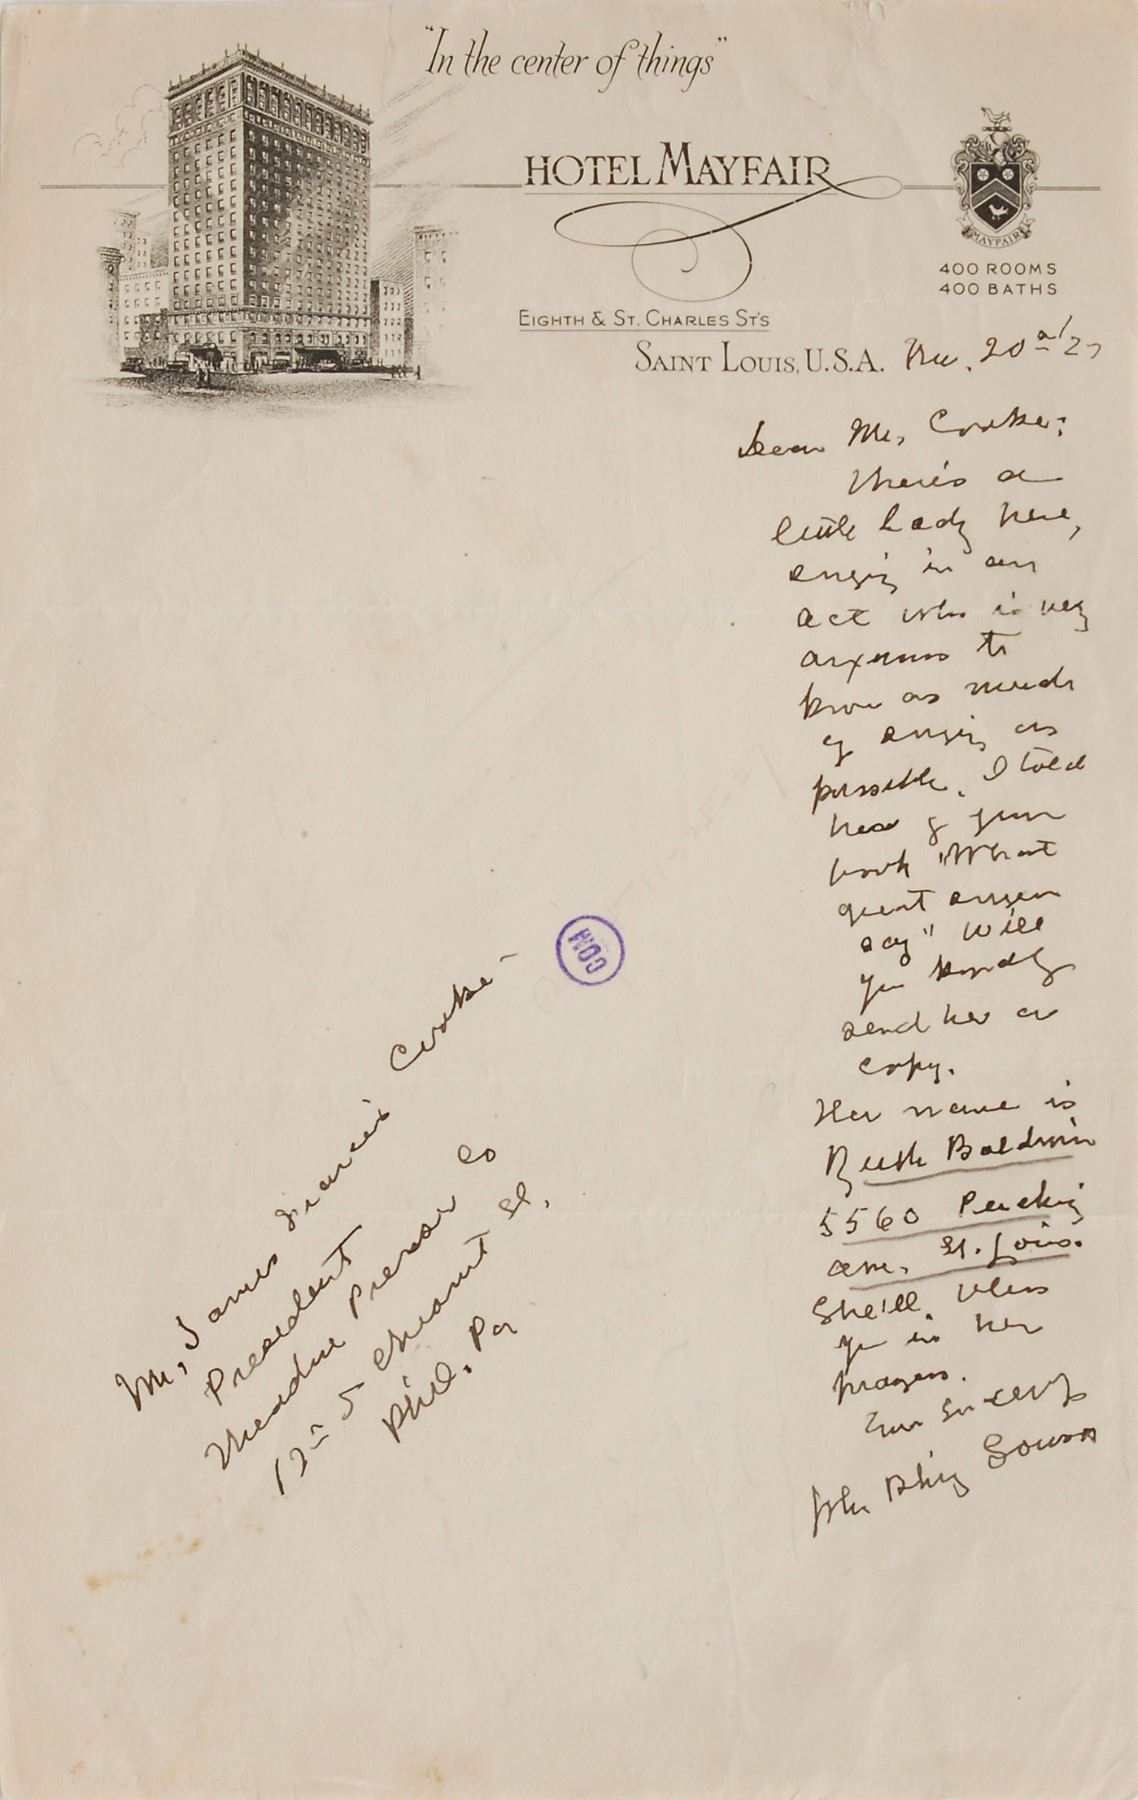 "In the center of things"
HOTEL MAYFAIR
MAYFAIR
400 ROOMS
400 BATHS
EIGHTH & ST. CHARLES ST'S
SAINT LOUIS, U.S.A. 20 /27
Dear Mr, Cooke:
There's a
little Lady here,
singing in an
act who is very
anxious to
know as much
of singing as
possible. I told
her of your
book "What
great singers
say" Will
you kindly
send her a
copy.
Her name is
Ruth Baldwin
5560 Pershing
ave, St. Louis.
She'll bless
you in her
prayers.
Your Sincerely
John Philip Sousa
Mr, James Francis Cooke -
President
Presser Co
Chesnut St,
Phil. Pa
COM